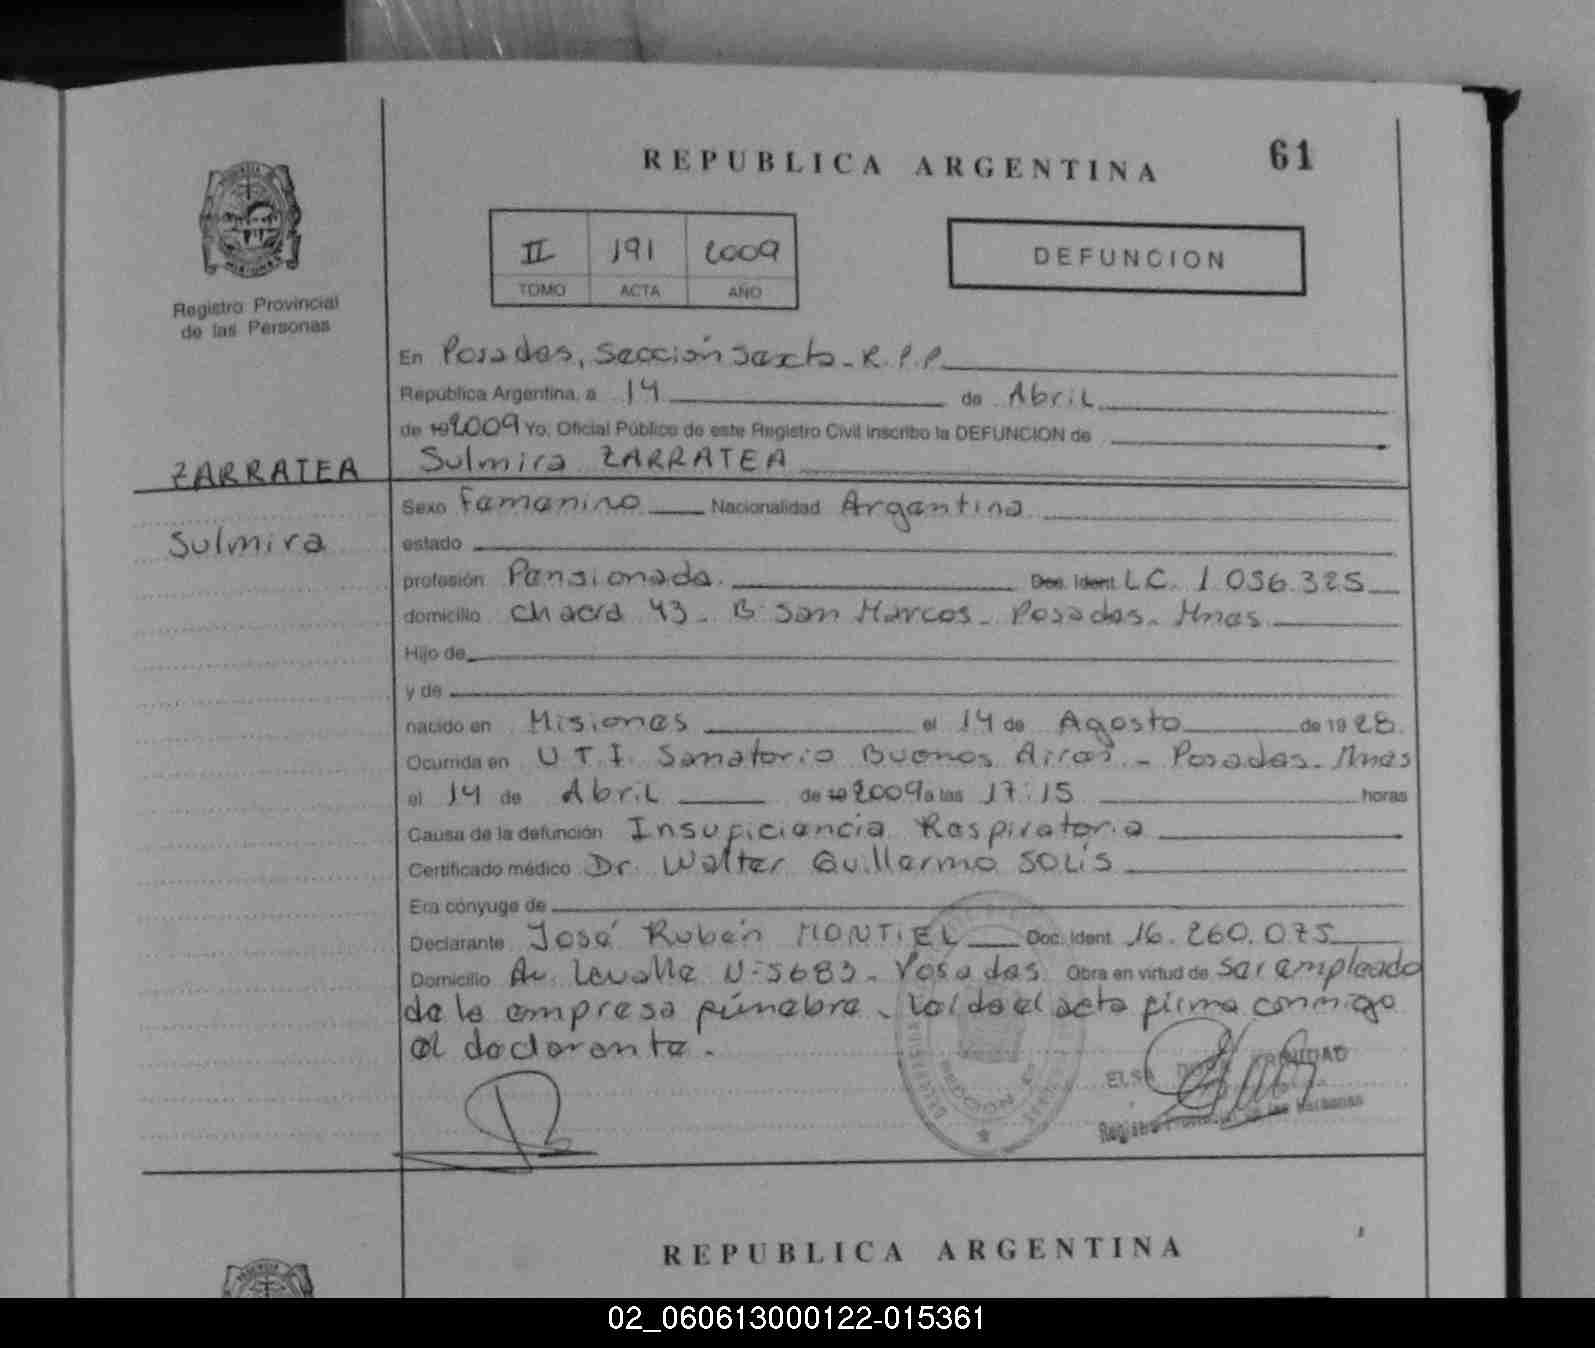 REPUBLICA ARGENTINA
61
II 191 2009
TOMO ACTA AÑO
DEFUNCION
Registro Provincial
de las Personas
En Posadas, Sección Sexta - R.P.P.
República Argentina, a 14 de Abril
de 19 2009 Yo, Oficial Público de este Registro Civil inscribo la DEFUNCION de
ZARRATEA
Sulmira ZARRATEA
Sexo Femenino Nacionalidad Argentina
Sulmira
estado
profesión Pensionada. Doc. Ident. L.C. 1.056.325
domicilio Chacra 43 - Bº San Marcos - Posadas - Mnes
Hijo de
y de
nacido en Misiones el 14 de Agosto de 19 28
Ocurrida en U.T.I. Sanatorio Buenos Aires - Posadas - Mnes
el 14 de Abril de 19 2009 a las 17:15 horas
Causa de la defunción Insuficiencia Respiratoria
Certificado médico Dr. Walter Guillermo SOLIS
Era cónyuge de
Declarante José Rubén MONTIEL Doc. Ident. 16.260.075
Domicilio Av. Lavalle Nº 5683 - Posadas Obra en virtud de ser empleado
de la empresa fúnebre - Leída el acta firma conmigo
el declarante.
ELSA TRINIDAD
Registro Provincial de las Personas
REPUBLICA ARGENTINA
02_060613000122-015361